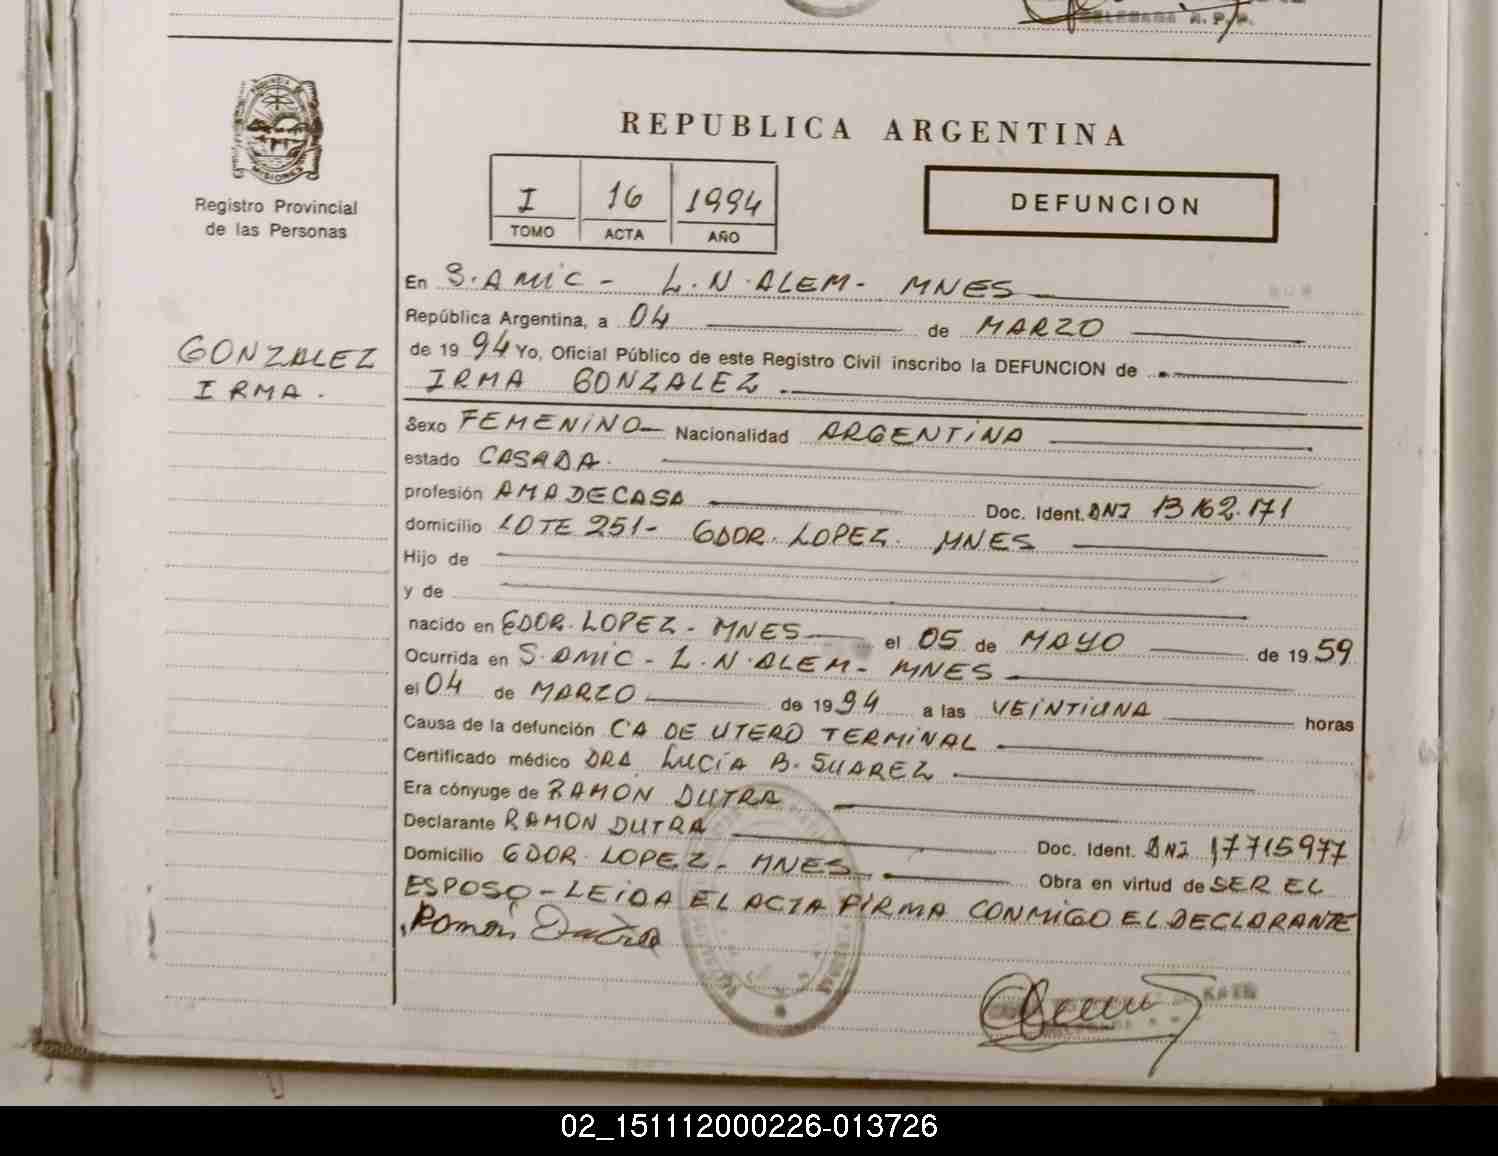 DELEGADA R. P. P.
PROVINCIA DE
MISIONES
Registro Provincial
de las Personas
GONZALEZ
IRMA.
REPUBLICA ARGENTINA
I 16 1994
TOMO ACTA AÑO
DEFUNCION
En S. AMIC - L.N. ALEM - MNES
República Argentina, a 04 de MARZO
de 19 94 Yo, Oficial Público de este Registro Civil inscribo la DEFUNCION de
IRMA GONZALEZ
Sexo FEMENINO Nacionalidad ARGENTINA
estado CASADA.
profesión AMA DE CASA Doc. Ident. DNI 13162.171
domicilio LOTE 251 - GDOR. LOPEZ. MNES
Hijo de
y de
nacido en GDOR. LOPEZ - MNES el 05 de MAYO de 19 59
Ocurrida en S. AMIC - L.N. ALEM - MNES
el 04 de MARZO de 19 94 a las VEINTIUNA horas
Causa de la defunción C'A DE UTERO TERMINAL
Certificado médico DRA. LUCIA B. SUAREZ
Era cónyuge de RAMON DUTRA
Declarante RAMON DUTRA Doc. Ident. DNI 17715977
Domicilio GDOR. LOPEZ - MNES Obra en virtud de SER EL
ESPOSO - LEIDA EL ACTA FIRMA CONMIGO EL DECLARANTE
Ramon Dutra
02_151112000226-013726